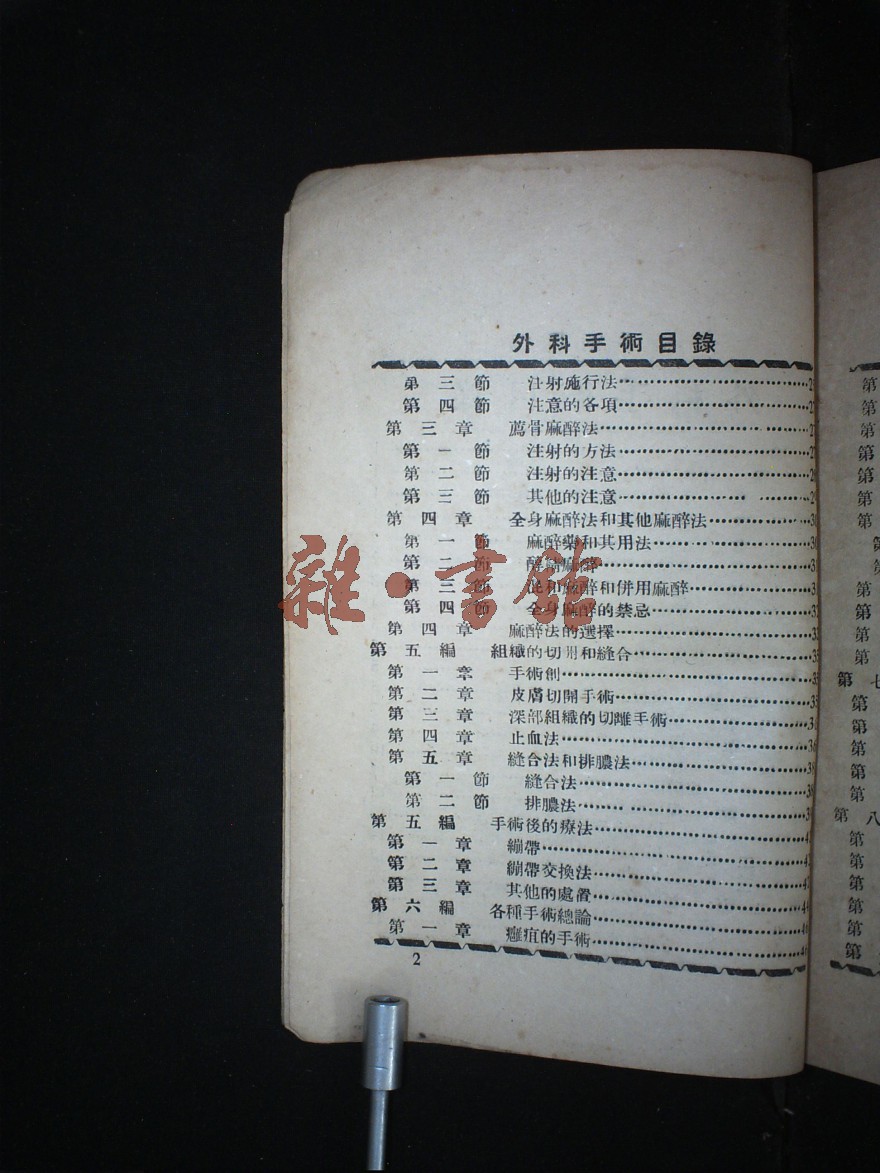 外科手術目錄
第三節 注射施行法
第四節 注意的各項
第三章 薦骨麻醉法
第一節 注射的方法
第二節 注射的注意
第三節 其他的注意
第四章 全身麻醉法和其他麻醉法
第一節 麻醉藥和其用法
第二節 麻醉
第三節 混和麻醉和併用麻醉
第四節 全身麻醉的禁忌
第四章 麻醉法的選擇
第五編 組織的切開和縫合
第一章 手術創
第二章 皮膚切開手術
第三章 深部組織的切離手術
第四章 止血法
第五章 縫合法和排膿法
第一節 縫合法
第二節 排膿法
第五編 手術後的療法
第一章 繃帶
第二章 繃帶交換法
第三章 其他的處置
第六編 各種手術總論
第一章 癰疽的手術
2
雜·書館
第
第
第
第
第
第
第
第
第
第
第
第
第
第 七
第
第
第
第
第
第 八
第
第
第
第
第
第